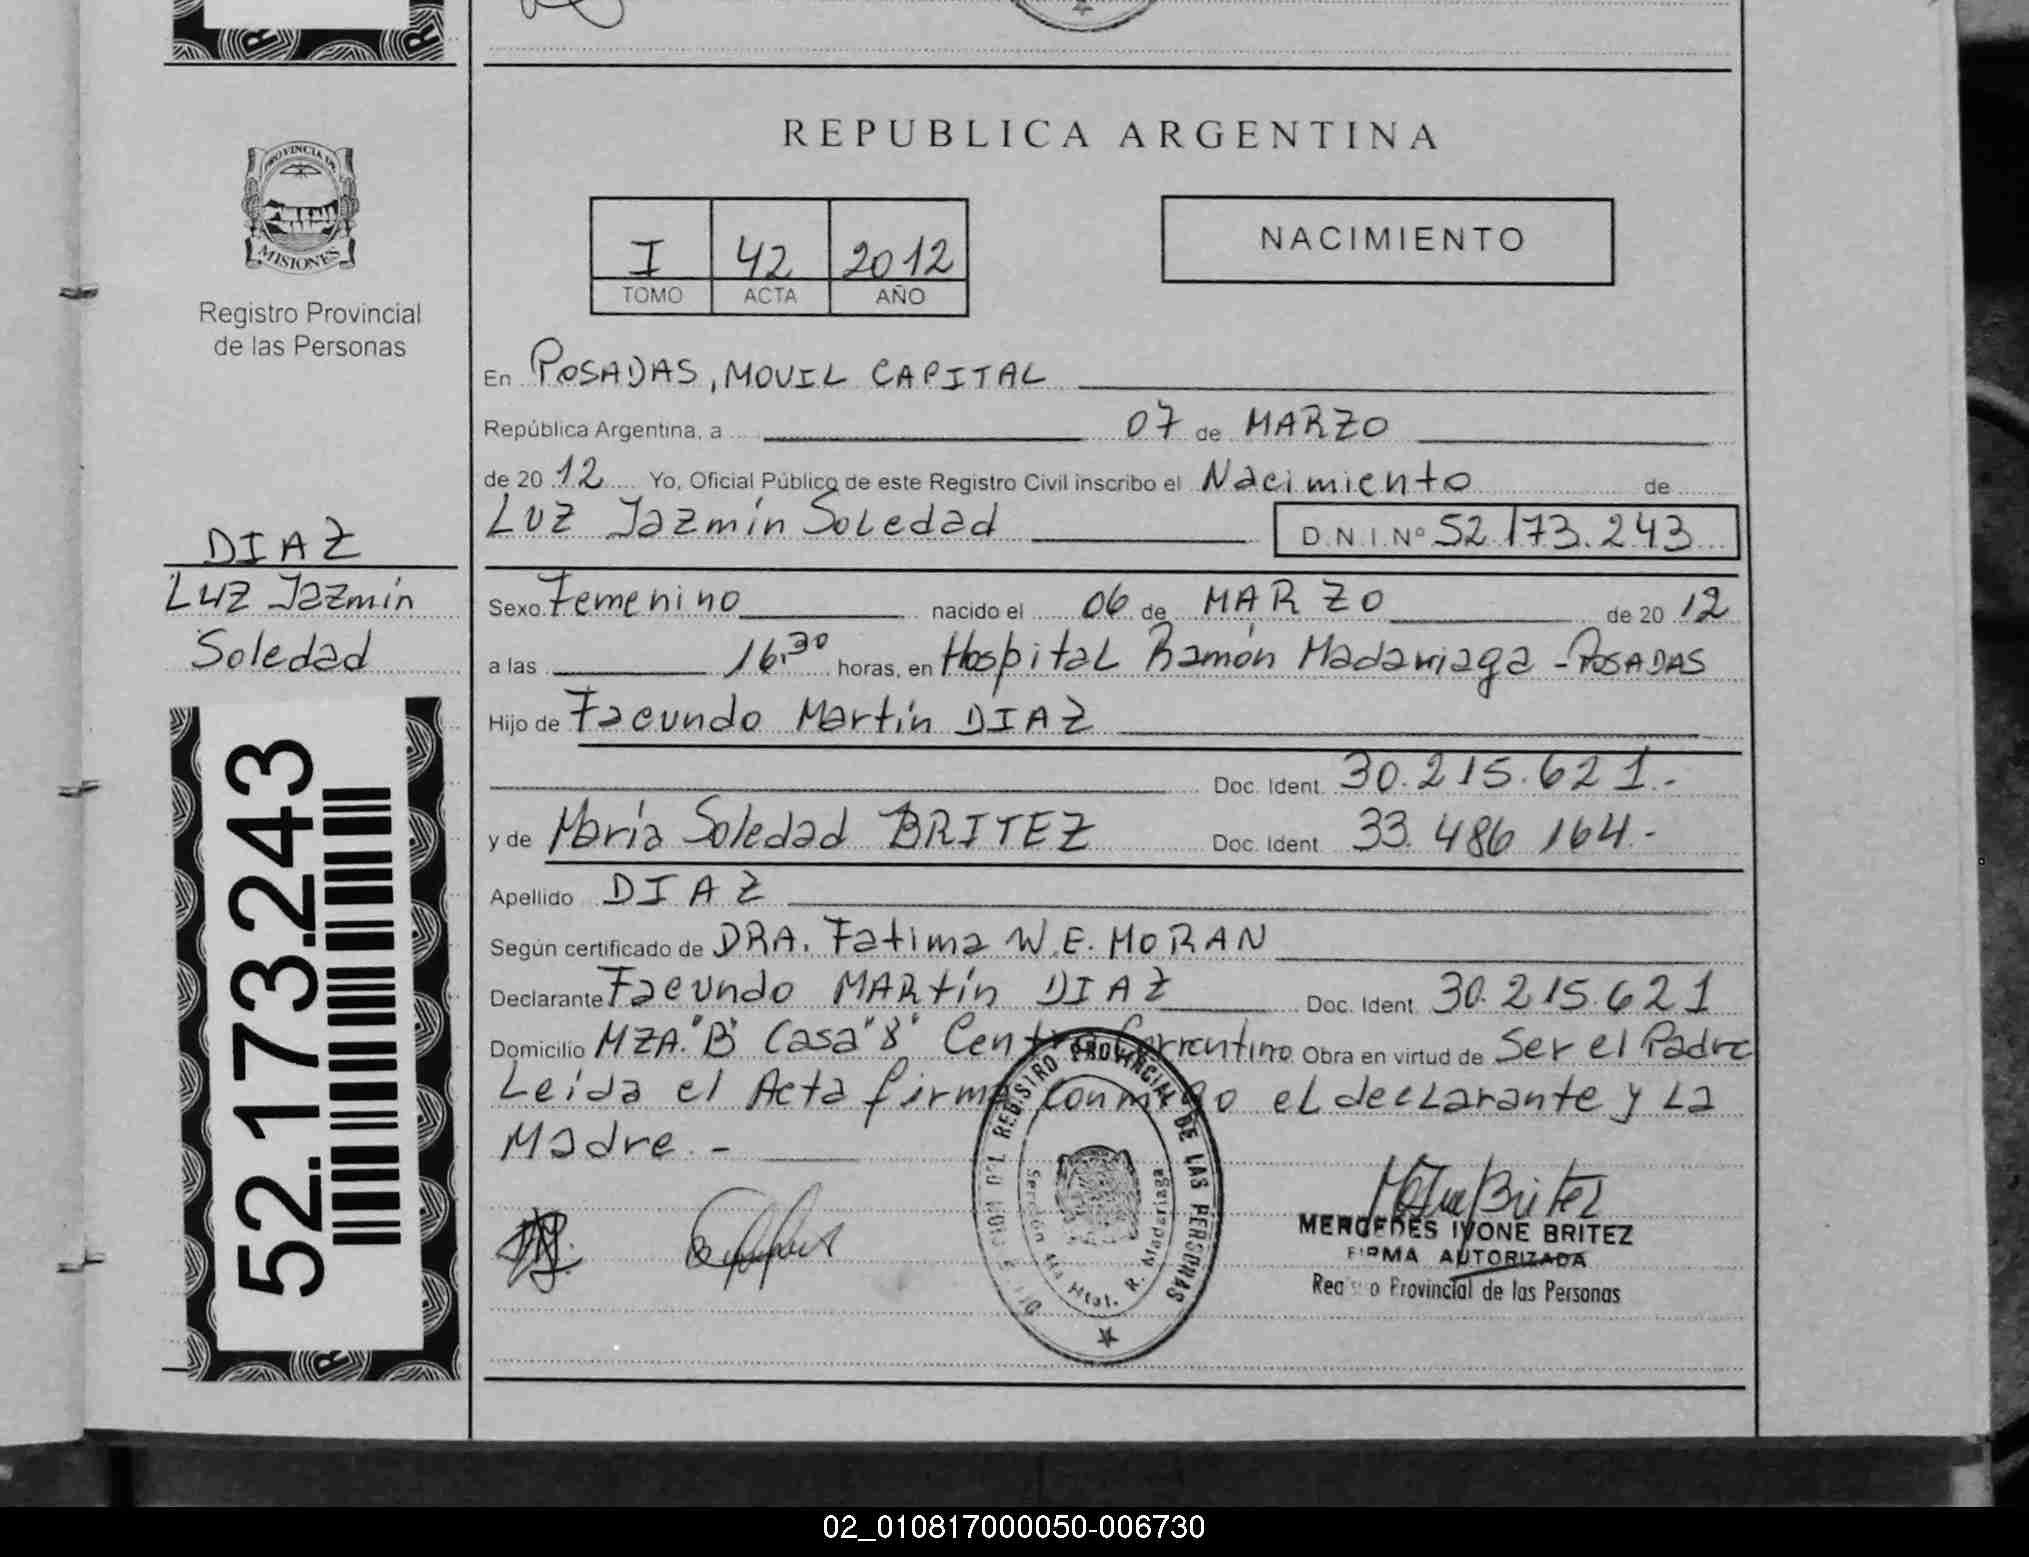 REPUBLICA ARGENTINA
PROVINCIA DE
MISIONES
Registro Provincial
de las Personas
I 42 2012
TOMO ACTA AÑO
NACIMIENTO
En POSADAS, MOVIL CAPITAL
República Argentina, a 07 de MARZO
de 2012 Yo, Oficial Público de este Registro Civil inscribo el Nacimiento de
LUZ Jazmín Soledad D.N.I.Nº 52.173.243
DIAZ
LUZ Jazmín
Soledad
52.173.243
Sexo Femenino nacido el 06 de MARZO de 2012
a las 16,30 horas, en Hospital Ramón Madariaga - POSADAS
Hijo de Facundo Martín DIAZ
Doc. Ident. 30.215.621.-
y de María Soledad BRITEZ Doc. Ident. 33.486 164.-
Apellido DIAZ
Según certificado de DRA. Fatima W.E. MORAN
Declarante Facundo MARtín DIAZ Doc. Ident. 30.215.621
Domicilio MZA."B" Casa "8" Centro Correntino Obra en virtud de Ser el Padre
Leída el Acta firma conmigo el declarante y La
Madre.-
REGISTRO PROVINCIAL DE LAS PERSONAS
Sección 4ta Htal. R. Madariaga
MERCEDES IVONE BRITEZ
FIRMA AUTORIZADA
Registro Provincial de las Personas
02_010817000050-006730